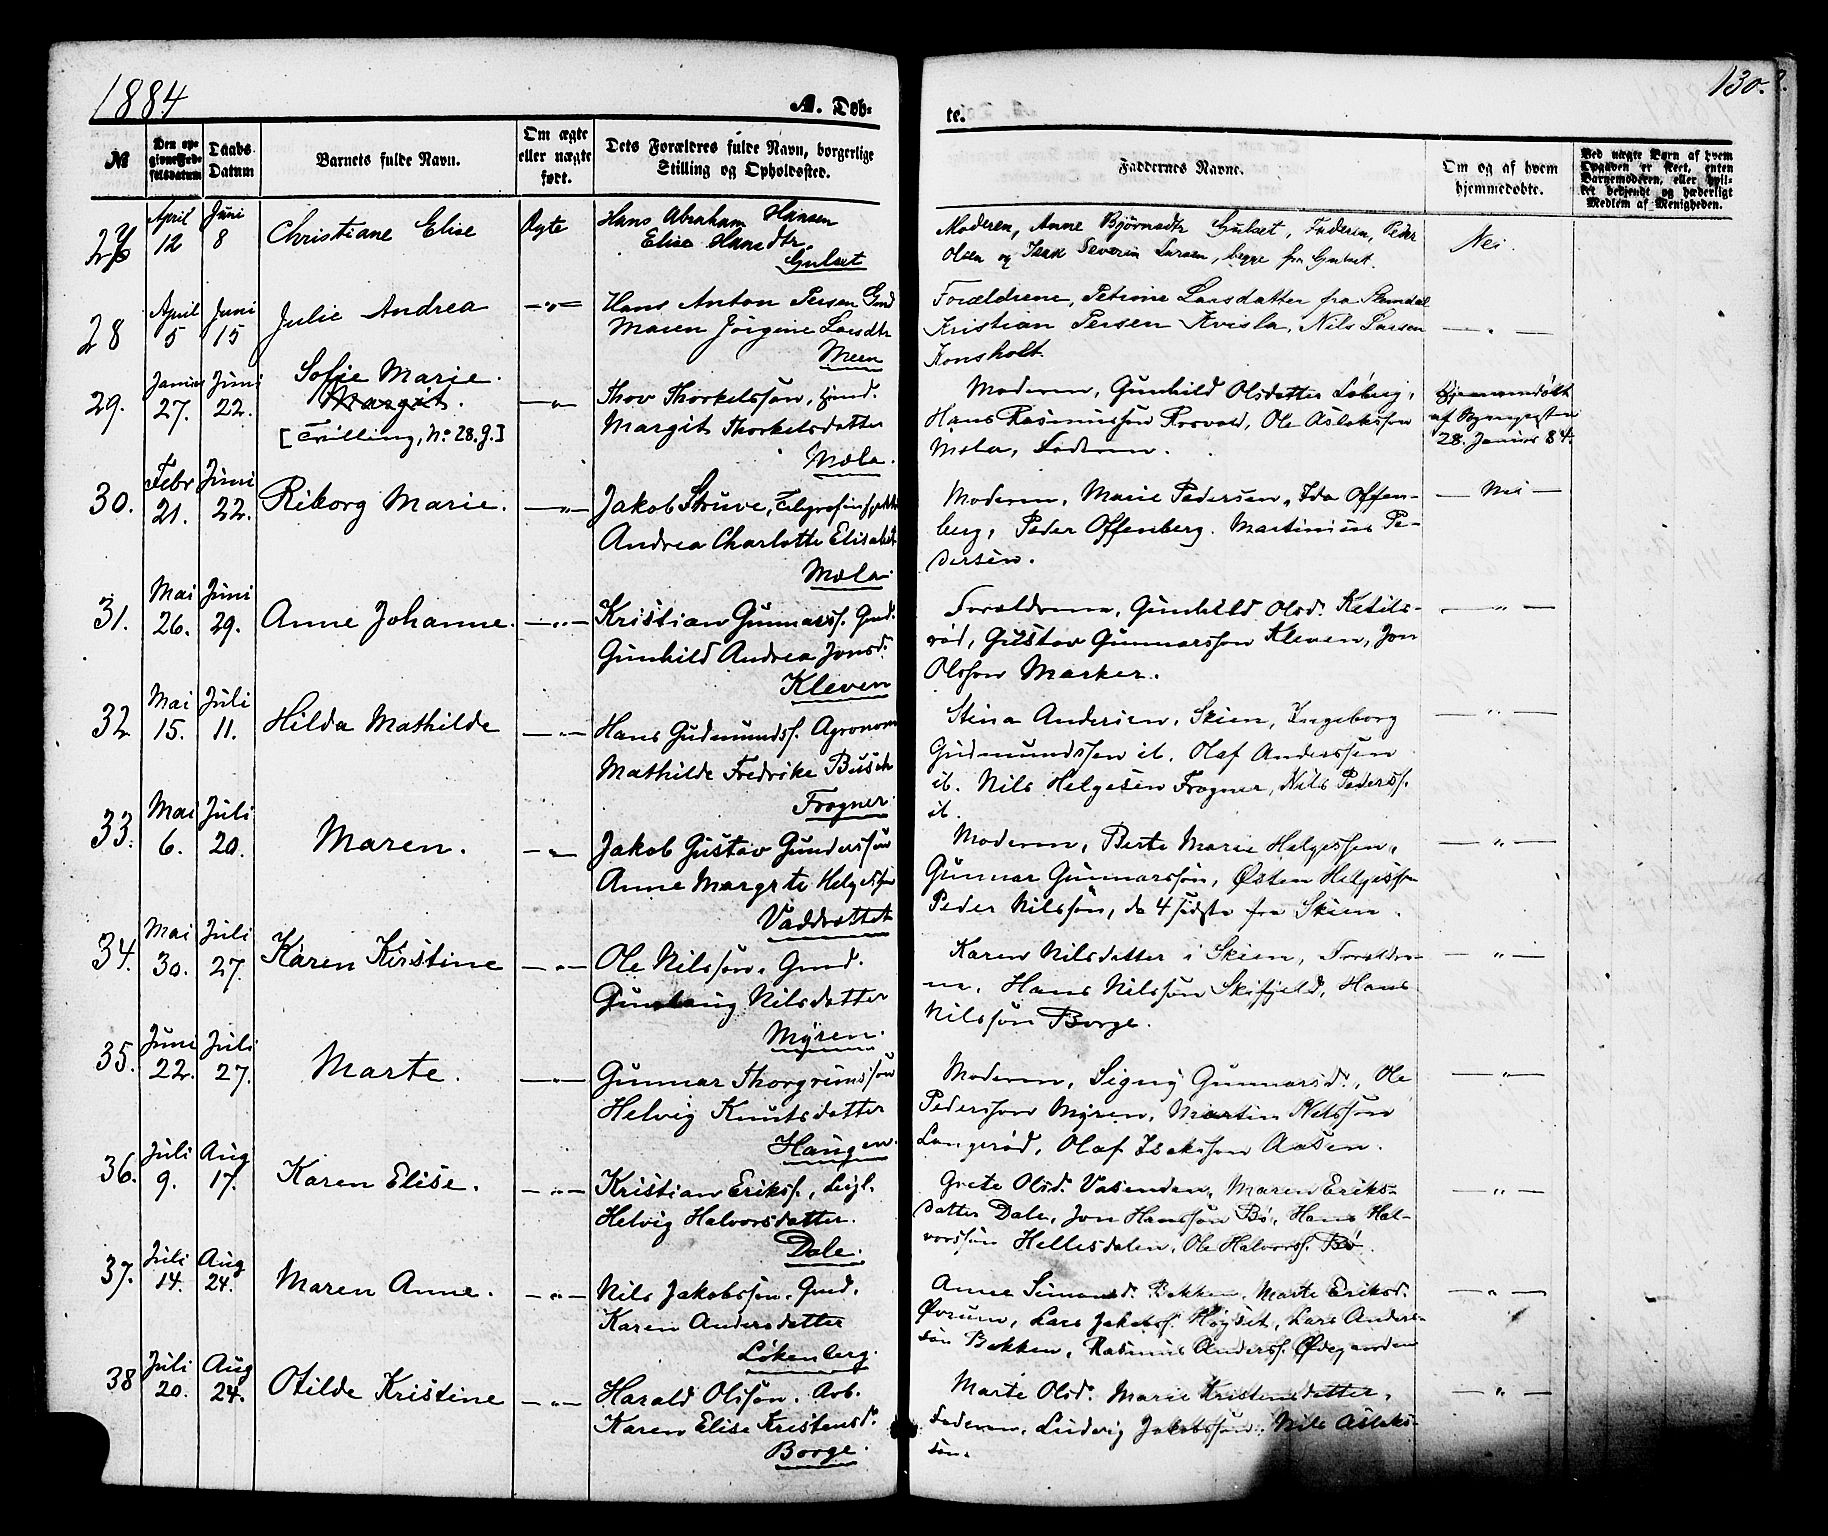 1884
A. Døb-
te.
130.
№
Den opgivne Fødselsdatum
Daabs Datum
Barnets fulde Navn.
Om ægte eller uægte født.
Dets Forældres fulde Navn, borgerlige Stilling og Opholdssted.
Faddernes Navne.
Om og af hvem hjemmedøbte.
Ved uægte Børn af hvem Opgaven er skeet, enten Barnemoderen, eller hvilket betjende og hæderligt Medlem af Menigheden.
27
April 12
Juni 8
Christiane Elise
Ægte
Hans Abraham Hansen
Elise Hansdtr
Gulset
Moderen, Anne Bjørnsdtr Gulset, Faderen, Peder
Olsen og Isak Severin Larsen, begge fra Gulset.
Nei.
28
April 5
Juni 15
Julie Andrea
— " —
Hans Anton Persen Gmd
Maren Jörgine Larsdtr
Meen
Forældrene, Petrine Larsdatter fra
Kristian Persen Kvisla, Nils Larsen
Konsholt
— " —
29.
Januar 27.
Juni 22.
Sofie Marie.
Margit.
[Trilling, No 28. g.]
— " —
Thov Thorkelssøn, Gmd.
Margit Thorkelsdatter
Mæla.
Moderen, Gunhild Olsdatter Løberg,
Hans Rasmussøn Rosvald, Ole Aslakssøn
Mæla, Faderen.
Hjemmedøbt
af
28. Januar 84.
30.
Febr 21.
Juni 22.
Rikorg Marie.
— " —
Jakob Struve,
Andrea Charlotte Elisabet
Mæla.
Moderen, Marie Pedersen, Ida Offen-
berg, Peder Offenberg. Martinius Pe-
dersen.
— Nei —
31.
Mai 26.
Juni 29.
Anne Johanne.
— " —
Kristian Gunnarss. Gmd.
Gunhild Andrea Jonsd.
Kleven
Forældrene, Gunhild Olsd. Ketils-
rød, Gustav Gunnarssøn Kleven, Jon
Olssøn Marker.
— " —
32
Mai 15.
Juli 11.
Hilda Mathilde
— " —
Hans Gudmundss. Agronom
Mathilde Fredrike Busch
Frogner.
Stina Andersen, Skien, Ingeborg
Gudmundssen ib. Olaf Anderssen
ib. Nils Helgesen Frogner, Nils Pederss.
ib.
— " —
33.
Mai 6.
Juli 20.
Maren.
— " —
Jakob Gustav Gunderssøn
Anne Margrete Helgessen
Vaddrættet
Moderen, Berte Marie Helgessen,
Gunnar Gunnarssøn, Østen Helgessøn
Peder Nilssøn, de 4 sidste fra Skien.
— " —
34.
Mai 30.
Juli 27.
Karen Kirstine
— " —
Ole Nilssøn. Gmd.
Gunlaug Nilsdatter
Myren.
Karen Nilsdatter i Skien, Forældre-
ne, Hans Nilssøn Skifjeld, Hans
Nilssøn Borge.
— " —
35.
Juni 22.
Juli 27.
Marte.
— " —
Gunnar Thorgrimssøn
Helvig Knutsdatter
Haugen.
Moderen, Signy Gunnarsd., Ole
Pederssøn Myren, Martin Nilssøn
Langerød, Olaf Isakssøn Aasen.
— " —
36.
Juli 9.
Aug 17.
Karen Elise.
— " —
Kristian Erikss., Leigl.
Helvig Halvorsdatter.
Dale.
Grete Olsd. Vasenden, Maren Eriks-
datter Dale, Jon Hanssøn Bø, Hans Hal-
vorssøn Hellesdalen, Ole Halvorss. Bø.
— " —
37.
Juli 14.
Aug 24.
Maren Anne.
— " —
Nils Jakobssøn. Gmd.
Karen Andersdatter
Løkenberg.
Anne Simonsd. Bakken, Marte Eriksd.
Øvrum, Lars Jakobss. Høyset, Lars Anders-
søn Bakken, Rasmus Anderss. Ødegaarden
— " —
38
Juli 20.
Aug 24.
Otilde Kristine
— " —
Harald Olssøn. Arb.
Karen Elise Kristensd.
Borge.
Marte Olsd. Marie Kristensdatter,
Faderen, Ludvig Jakobssøn, Nils Aslaks-
søn.
— " —